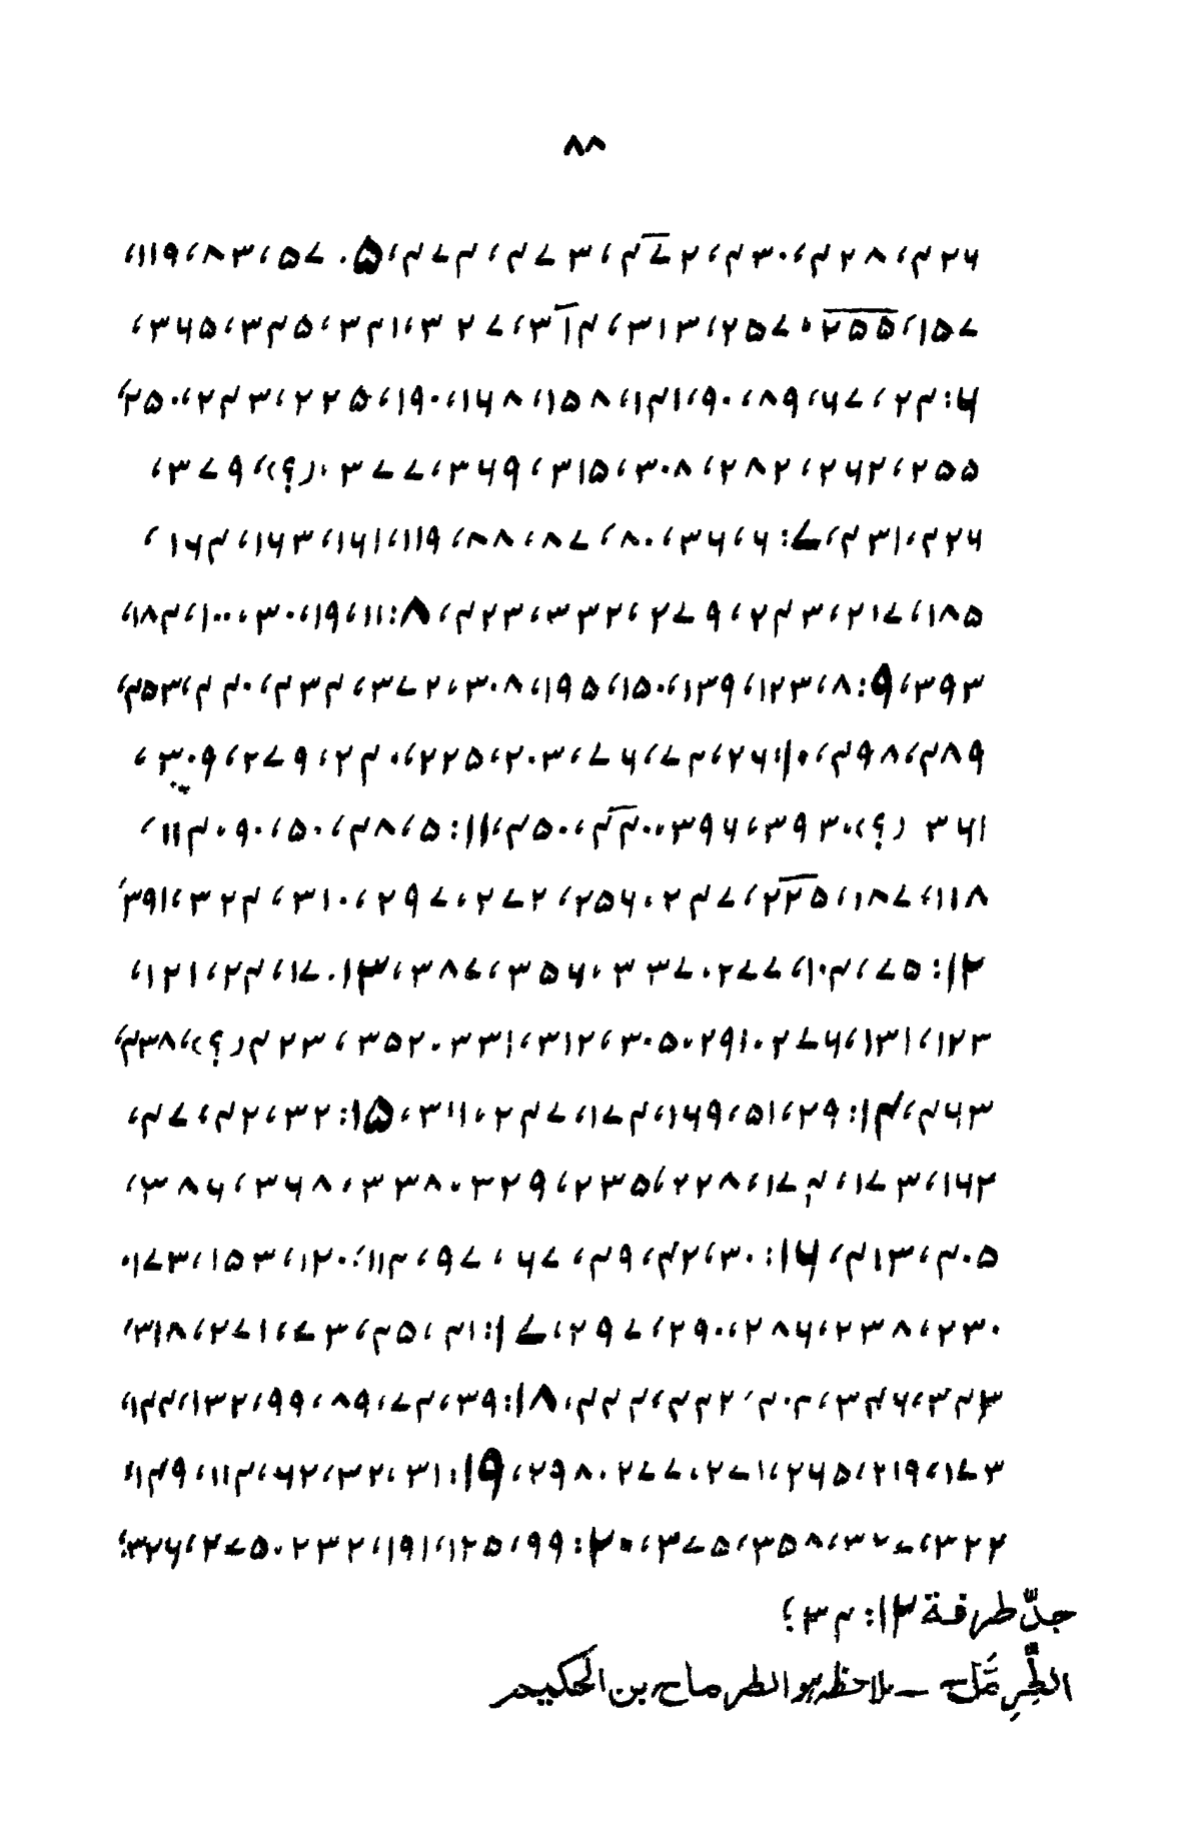 ۸۸
۴۲۶، ۴۲۸، ۴۳۰، ۴۷۲، ۴۷۳، ۴۷۴، ۵: ۵۷، ۸۳، ۱۱۹،
۱۵۷، ۲۵۵، ۲۵۷، ۳۱۳، ۳۱۴، ۳۲۷، ۳۴۱، ۳۴۵، ۳۶۵،
۶: ۲۴، ۶۷، ۸۹، ۹۰، ۱۴۱، ۱۵۸، ۱۶۸، ۱۹۰، ۲۲۵، ۲۴۳، ۲۵۰،
۲۵۵، ۲۶۲، ۲۸۲، ۳۰۸، ۳۱۵، ۳۶۹، ۳۷۷، (؟)، ۳۷۹،
۴۲۶، ۴۳۱، ۷: ۶، ۳۶، ۸۰، ۸۷، ۸۸، ۱۱۹، ۱۶۱، ۱۶۳، ۱۶۴،
۱۸۵، ۲۱۷، ۲۴۳، ۲۷۹، ۳۳۲، ۴۲۳، ۸: ۱۱، ۱۹، ۳۰، ۱۰۰، ۱۸۴،
۳۹۳، ۹: ۸، ۱۲۳، ۱۳۹، ۱۵۰، ۱۹۵، ۳۰۸، ۳۷۲، ۴۳۴، ۴۴۰، ۴۵۳،
۴۸۹، ۴۹۸، ۱۰: ۲۶، ۴۷، ۶۷، ۲۰۳، ۲۲۵، ۲۴۰، ۲۷۹، ۳۰۹،
۳۶۱ (؟)، ۳۹۳، ۳۹۶، ۴۴۰، ۴۵۰، ۱۱: ۵، ۴۸، ۵۰، ۹۰، ۱۱۴،
۱۱۸، ۱۸۷، ۲۲۵، ۲۴۷، ۲۵۶، ۲۷۲، ۲۹۷، ۳۱۰، ۳۲۴، ۳۹۱،
۱۲: ۵۷، ۱۰۴، ۲۷۷، ۳۳۷، ۳۵۶، ۳۸۷، ۱۳: ۱۷، ۲۴، ۱۲۱،
۱۲۳، ۱۳۱، ۲۷۶، ۲۹۱، ۳۰۵، ۳۱۲، ۳۳۱، ۳۵۲، ۴۲۳ (؟)، ۴۳۸،
۴۶۳، ۱۴: ۲۹، ۵۱، ۱۶۹، ۱۷۴، ۲۴۷، ۳۱۱، ۱۵: ۳۲، ۴۲، ۴۷،
۱۶۲، ۱۷۳، ۱۷۴، ۲۲۸، ۲۳۵، ۳۲۹، ۳۳۸، ۳۶۸، ۳۸۶،
۴۰۵، ۴۱۳، ۱۶: ۳۰، ۴۲، ۴۹، ۷۶، ۷۹، ۱۱۴، ۱۲۰، ۱۵۳، ۱۷۳،
۲۳۰، ۲۳۸، ۲۸۶، ۲۹۰، ۲۹۷، ۱۷: ۴۱، ۴۵، ۷۳، ۲۷۱، ۳۱۸،
۳۴۳، ۳۴۶، ۴۰۴، ۴۴۲، ۴۴۴، ۱۸: ۳۹، ۷۴، ۸۹، ۹۹، ۱۳۲، ۱۴۴،
۱۷۳، ۲۱۹، ۲۶۵، ۲۷۱، ۲۷۷، ۲۹۸، ۱۹: ۳۱، ۳۲، ۶۲، ۱۱۴، ۱۴۹،
۳۲۲، ۳۲۷، ۳۵۸، ۳۷۵، ۲۰: ۹۹، ۱۲۵، ۱۹۱، ۲۳۲، ۲۷۵، ۳۲۶؛
جدّ طرفة ۱۳: ۳۴؛
الطِّرِمَّاح — ملاحظہ ہو الطرماح بن الحکیم